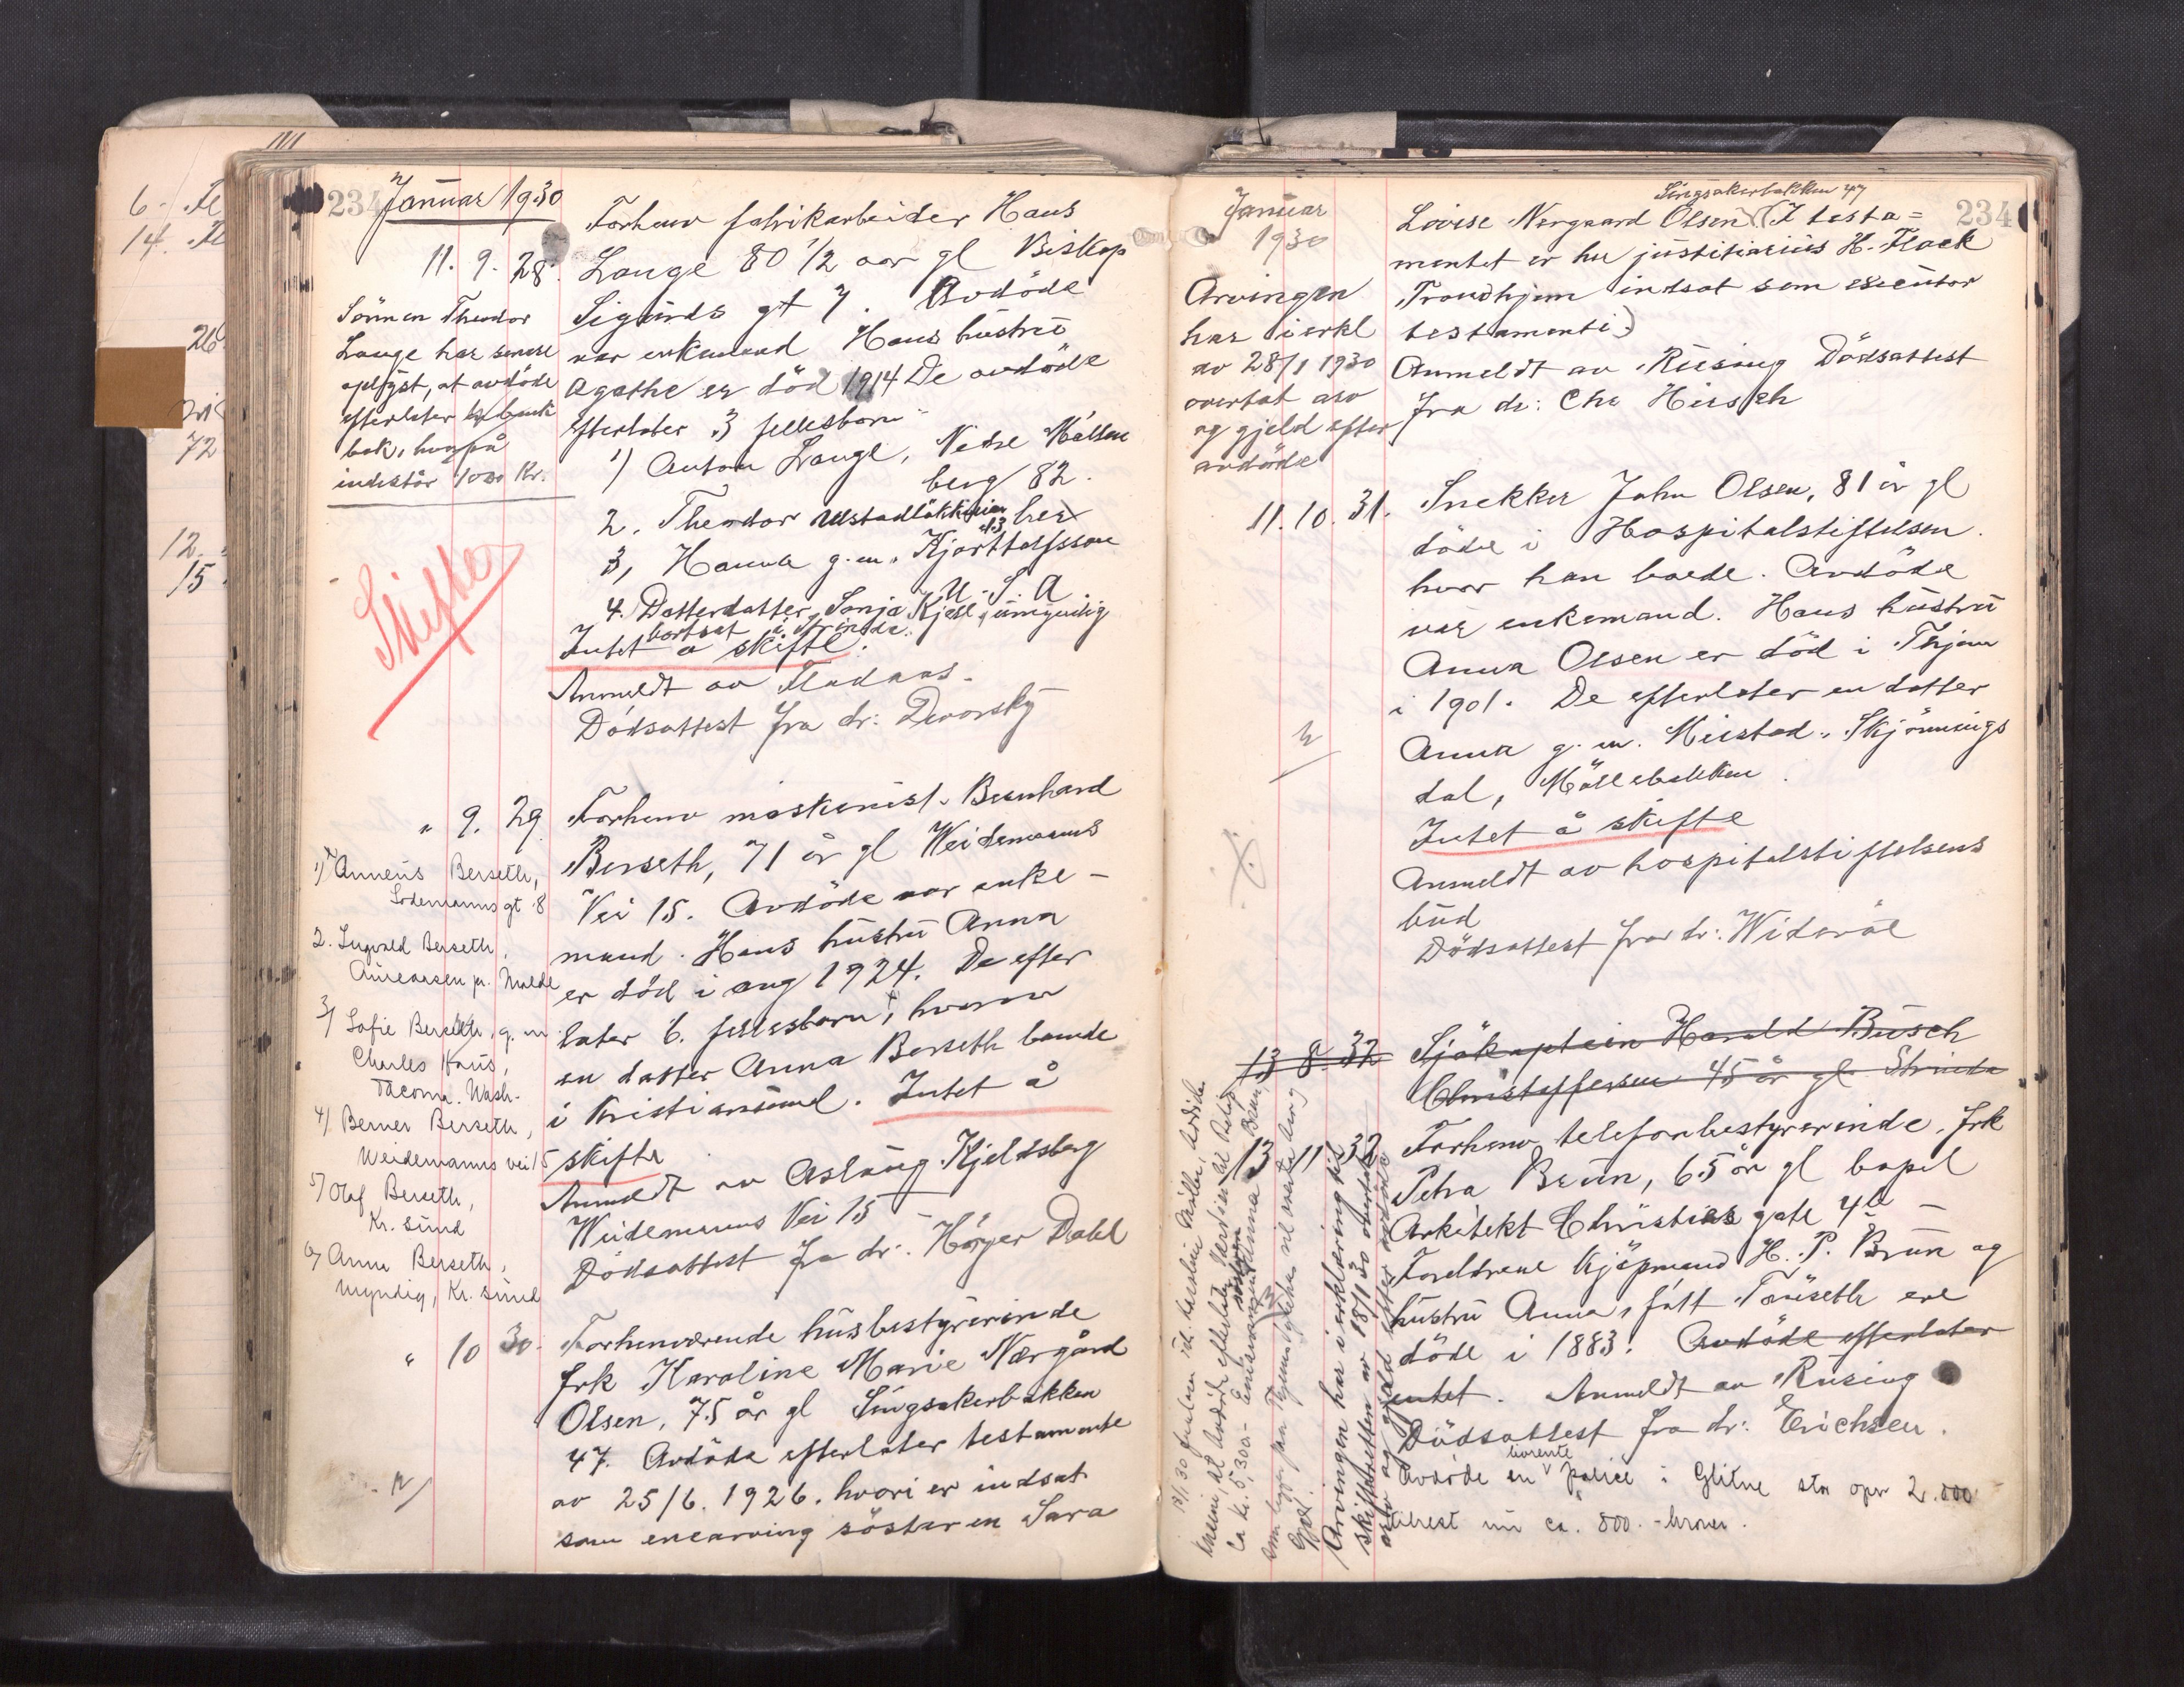 234 Januar 1930
11. 9. 28. Forhenv fabrikarbeider Hans
Lange 80 1/2 aar gl Biskop
Sigurds gt 7. Avdöde
var enkemand Hans hustru
Agathe er död 1914 De avdöde
efterlater 3 fellesbarn
1) Anton Lange, Nedre Möllen
berg 82.
2. Theodor Ulstadløkkveien 13 her
3, Hanna g.m. Kjartholfsson
U.S.A
4. Datterdatter, Sonja Kjell, umyndig
bortsat i Strinda.
Intet å skifte.
Anmeldt av Fladaas.
Dödsattest fra dr: Devorsky
Sönnen Theodor
Lange har senere
oplyst, at avdöde
efterlater bank
bok, hvorpå
indestår 1000 Kr.
Skifte
" 9. 29. Forhenv maskinist Bernhard
Berseth, 71 år gl Weidemanns
Vei 15. Avdöde var enke-
mand. Hans hustru Anna
er död i aug 1924. De efter
later 6. fellesbarn, hvorav
en datter Anna Berseth boende
i Kristiansund. Intet å
skifte
Anmeldt av Aslaug Kjeldsberg
Weidemanns Vei 15 -
Dödsattest fra dr: Höyer Dahl
1) Anneus Berseth,
Lodemanns gt 8
2. Ingvald Berseth,
Aureosen pr. Molde
3) Sofie Berseth, g. m
Charles Haus,
Tacoma. Wash-
4) Berner Berseth,
Weidemanns vei 15
5) Olaf Berseth,
Kr. sund
6) Anna Berseth,
myndig, Kr. sund
" 10 30. Forhenværende husbestyrerinde
frk Karoline Marie Nærgård
Olsen, 75 år gl Singsakerbakken
47. Avdöde efterlater testamente
av 25/6. 1926. hvori er indsat
som enearving söster en Sara
Januar
1930
234
Singsakerbakken 47
Lovise Nergaard Olsen (I testa=
mentet er hr justitiarius H. Flock
Trondhjem indsat som executor
testamenti)
Anmeldt av Rusing Dödsattest
fra dr: Chr Hirsch
Arvingen
har i erkl
av 28/1 1930
overtat arv
og gjeld efter
avdöde
11. 10. 31. Snekker John Olsen, 81 år gl
döde i Hospitalstiftelsen.
hvor han boede. Avdöde
var enkemand. Hans hustru
Anna Olsen er död i Thjem
i 1901. De efterlater en datter
Anna g. m. Meistad, Skjönnings
dal, Möllebakken.
Intet å skifte
Anmeldt av hospitalstiftelsens
bud
Dödsattest fra dr: Wideröe
13 8. 32 Sjökaptein Harald Busch
Christoffersen 45 år gl Strinda
13 11 32 Forhenv telefonbestyrerinde, frk
Petra Brun, 65 år gl bopel
Arkitekt Christies gate 4b -
Foreldrene Kjöpmand H. P. Brun og
hustru Anna, född Tauseth ere
döde i 1883. Avdöde efterlater
intet. Anmeldt av Rusing
Dödsattest fra dr: Erichsen.
Avdöde en livrente police i Glitne stor opr 2.000
tilrest nu ca. 800.- kroner.
Arvingen har i erklæring til
skifteretten av 18/1 30 overtat
arv og gjeld efter avdöde